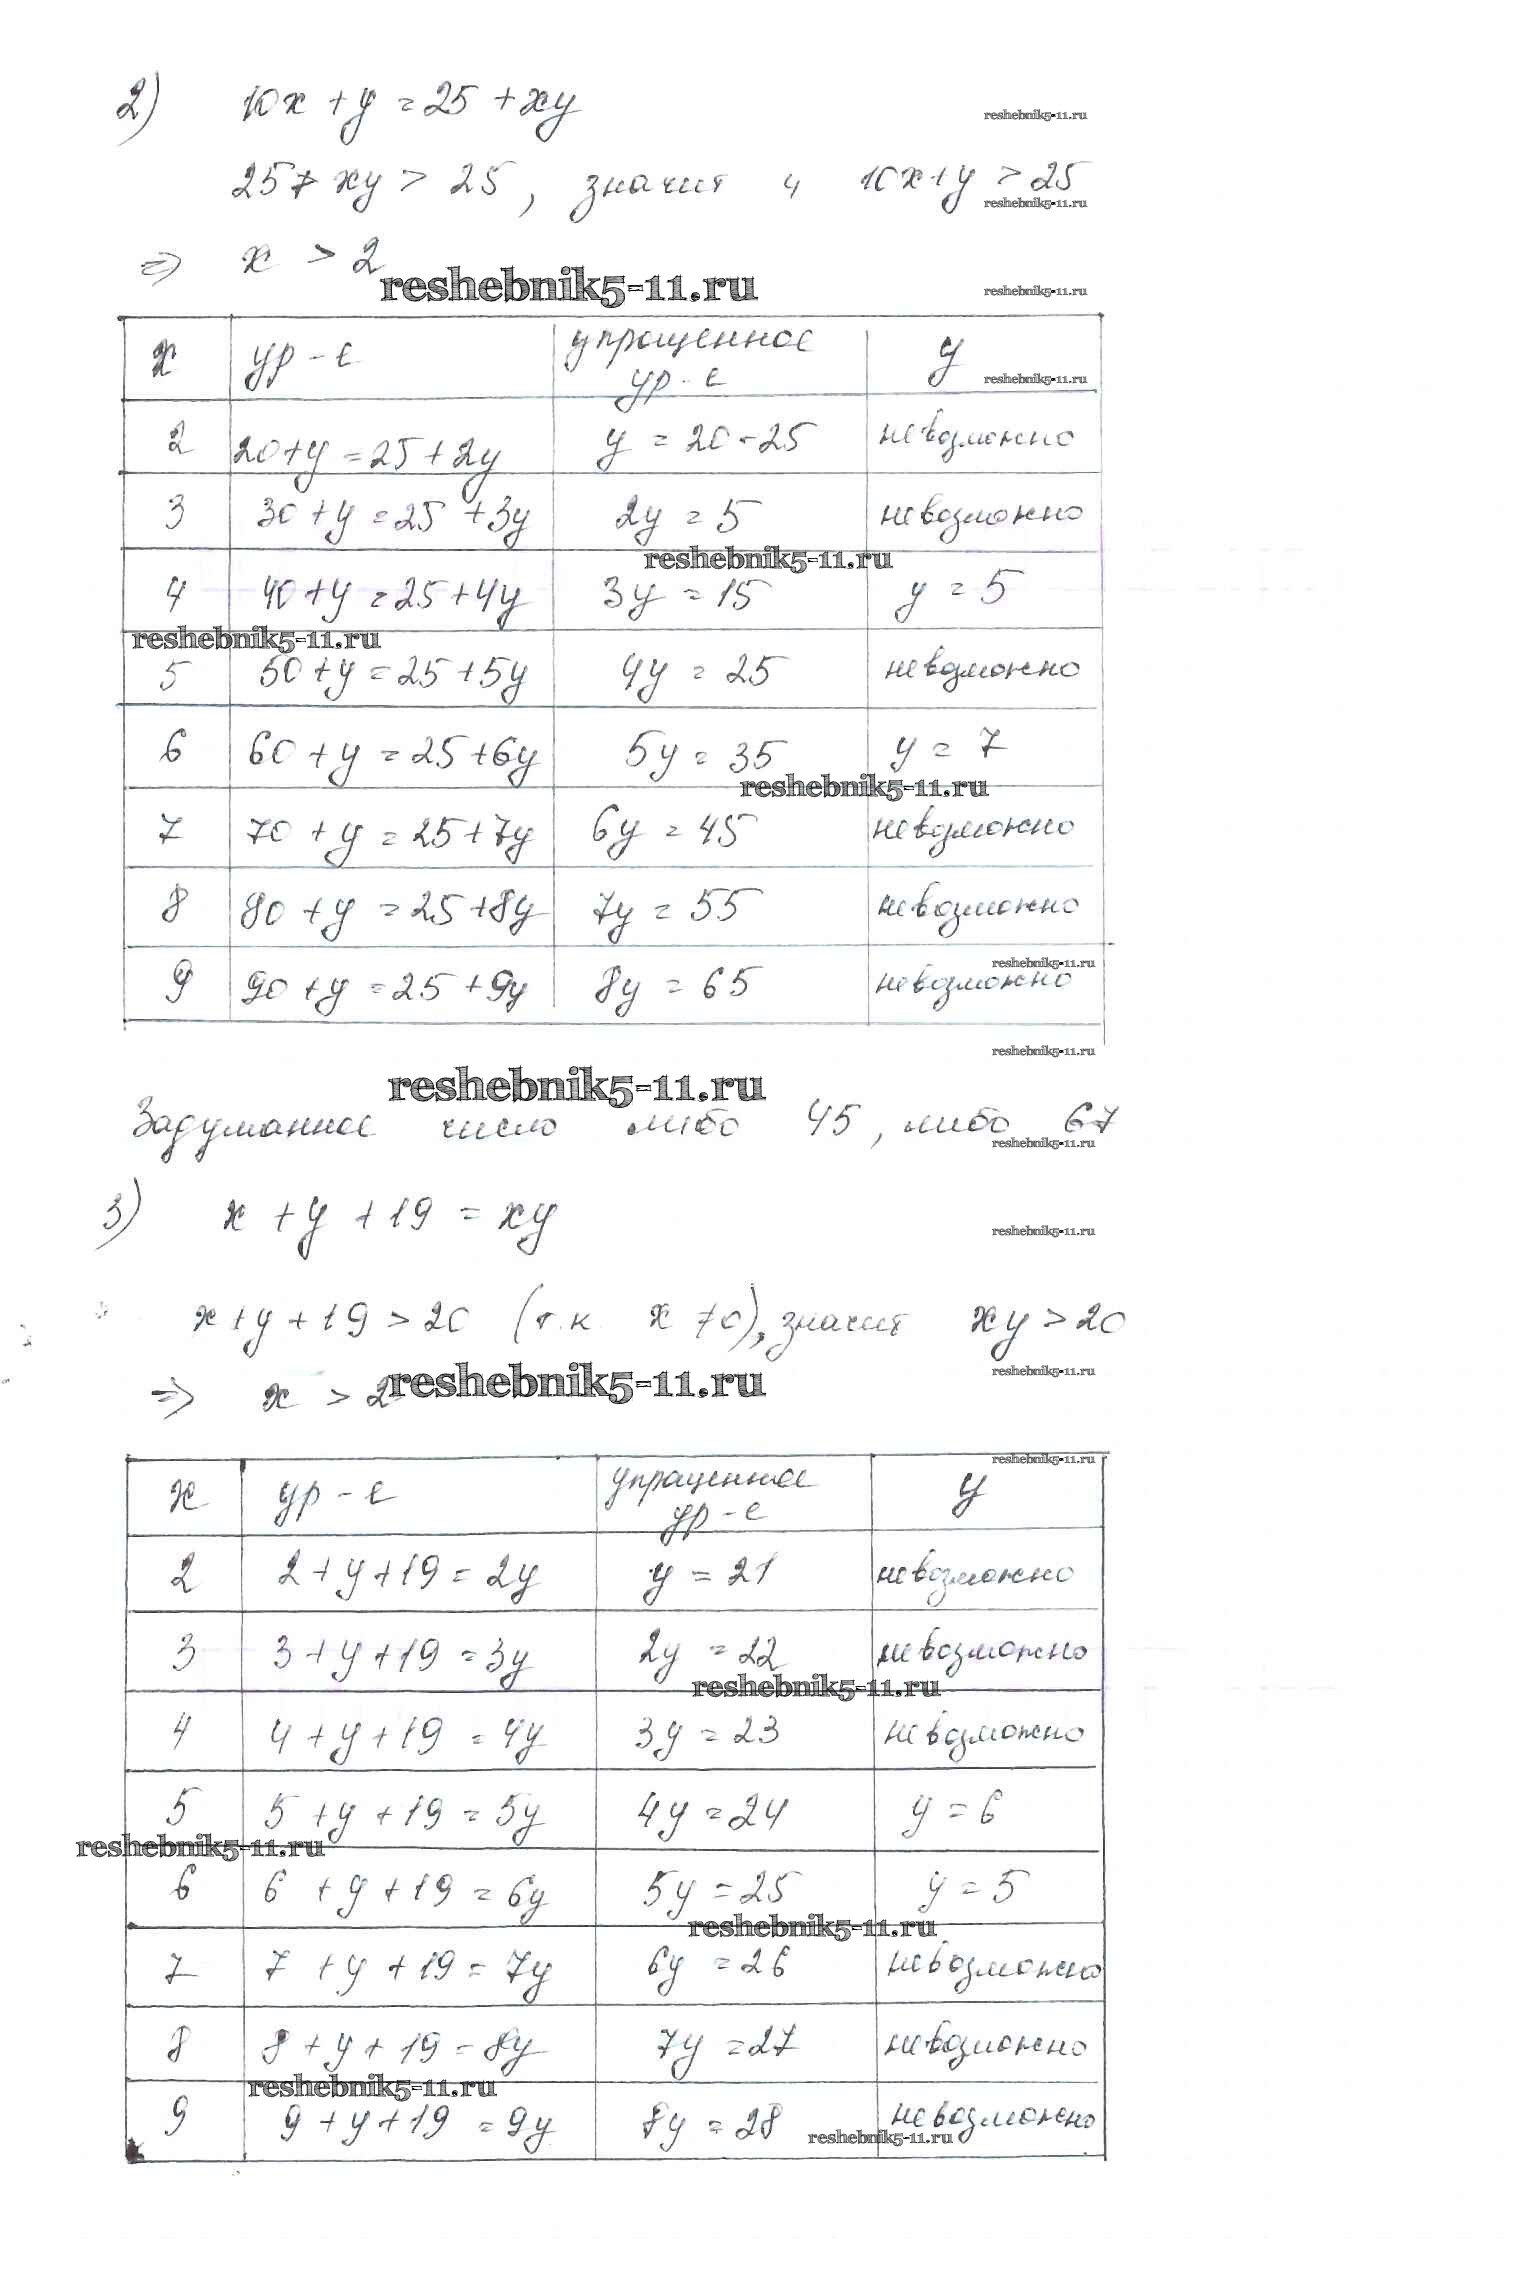 2) 10x + y = 25 + xy
reshebnik5-11.ru
25 + xy > 25, значит и 10x+y > 25
reshebnik5-11.ru
=> x > 2
reshebnik5-11.ru
reshebnik5-11.ru
x ур-е упрощенное ур-е y
reshebnik5-11.ru
2 20+y = 25+2y y = 20-25 невозможно
3 30+y = 25+3y 2y = 5 невозможно
reshebnik5-11.ru
4 40+y = 25+4y 3y = 15 y = 5
reshebnik5-11.ru
5 50+y = 25+5y 4y = 25 невозможно
6 60+y = 25+6y 5y = 35 y = 7
reshebnik5-11.ru
7 70+y = 25+7y 6y = 45 невозможно
8 80+y = 25+8y 7y = 55 невозможно
reshebnik5-11.ru
9 90+y = 25+9y 8y = 65 невозможно
reshebnik5-11.ru
reshebnik5-11.ru
Задуманное число либо 45, либо 67
reshebnik5-11.ru
3) x + y + 19 = xy
reshebnik5-11.ru
x+y+19 > 20 (т.к x ≠0), значит xy > 20
reshebnik5-11.ru
=> x > 2
reshebnik5-11.ru
reshebnik5-11.ru
x ур-е упращенное ур-е y
2 2+y+19 = 2y y = 21 невозможно
3 3+y+19 = 3y 2y = 22 невозможно
reshebnik5-11.ru
4 4+y+19 = 4y 3y = 23 невозможно
5 5+y+19 = 5y 4y = 24 y = 6
reshebnik5-11.ru
6 6+y+19 = 6y 5y = 25 y = 5
reshebnik5-11.ru
7 7+y+19 = 7y 6y = 26 невозможно
8 8+y+19 = 8y 7y = 27 невозможно
reshebnik5-11.ru
9 9+y+19 = 9y 8y = 28 невозможно
reshebnik5-11.ru